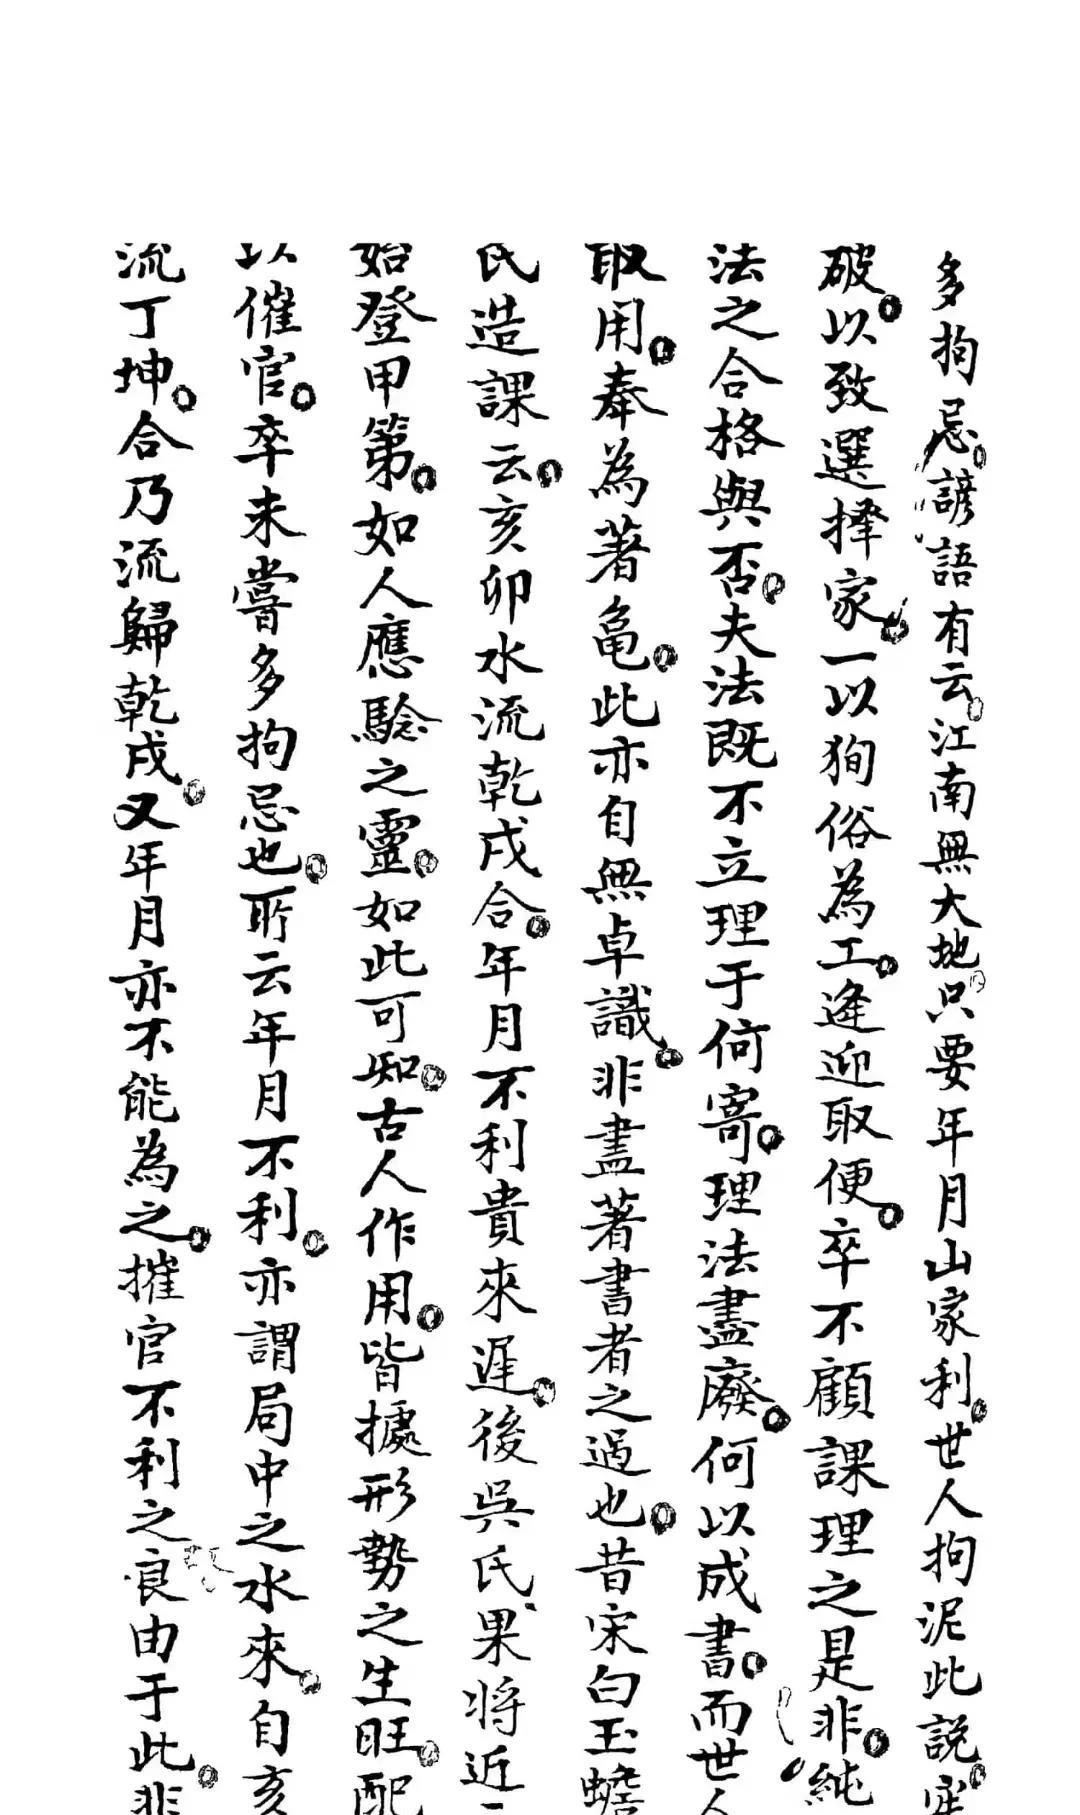 多拘忌諺語有云江南無大地只要年月山家利世人拘泥此説牢
破以致選擇家一以狥俗為工逢迎取便卒不顧課理之是非純
法之合格與否夫法既不立理于何寄理法盡廢何以成書而世人
取用奉為蓍亀此亦自無卓識非盡著書者之過也昔宋白玉蟾
氏造課云亥卯水流乾戌合年月不利貴來遲後吳氏果將近
始登甲第如人應騐之靈如此可知古人作用皆據形勢之生旺配
以催官卒未嘗多拘忌也所云年月不利亦謂局中之水來自亥
流丁坤合乃流歸乾戌又年月亦不能為之摧官不利之良由于此非